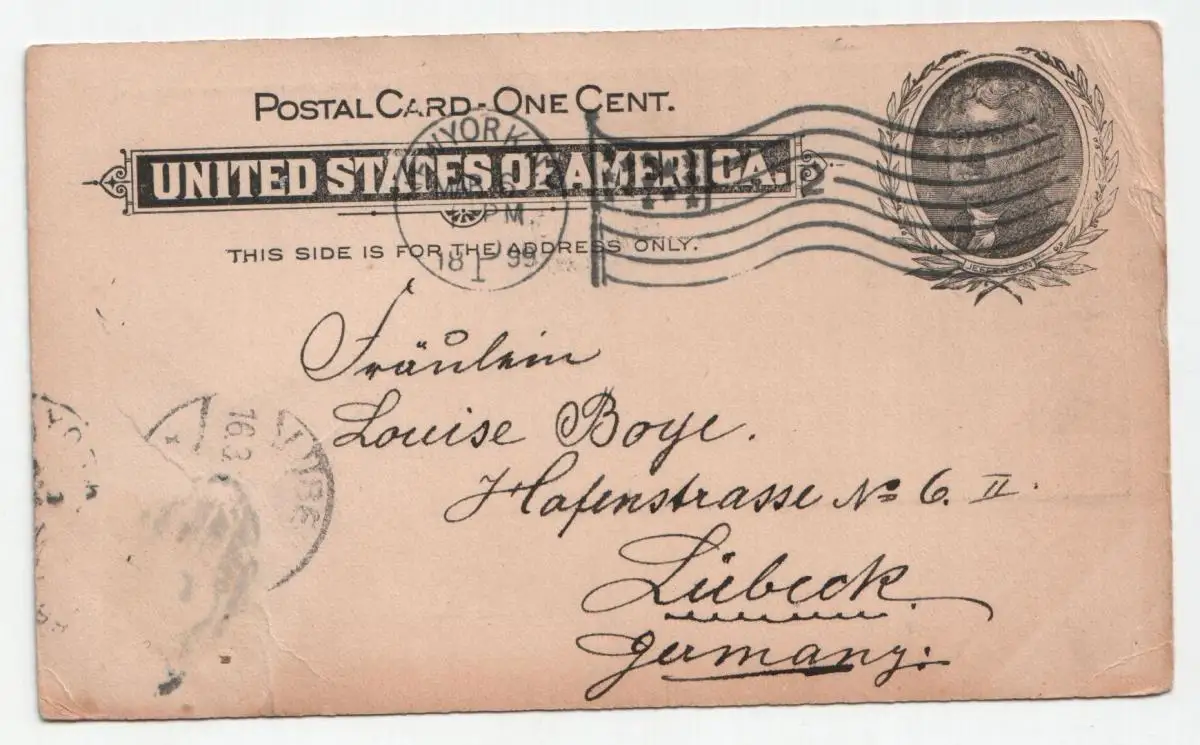 POSTAL CARD - ONE CENT.
UNITED STATES OF AMERICA.
THIS SIDE IS FOR THE ADDRESS ONLY.
JEFFERSON
NEW YORK
PM
18 99
1
2
Fräulein
Louise Boye.
Hafenstrasse No 6. II.
Lübeck
Germany.
16.3